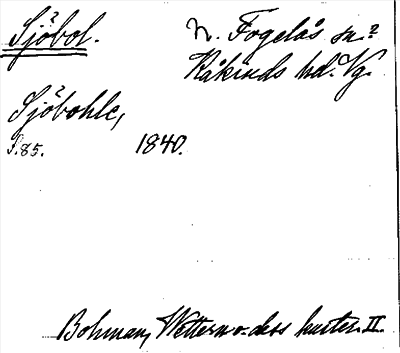 Sjöbol.
N. Fogelås sn?
Kåkinds hd. Vg.
Sjöbohle,
S. 85. 1840.
Bohman, Wettern o. dess kuster. II.